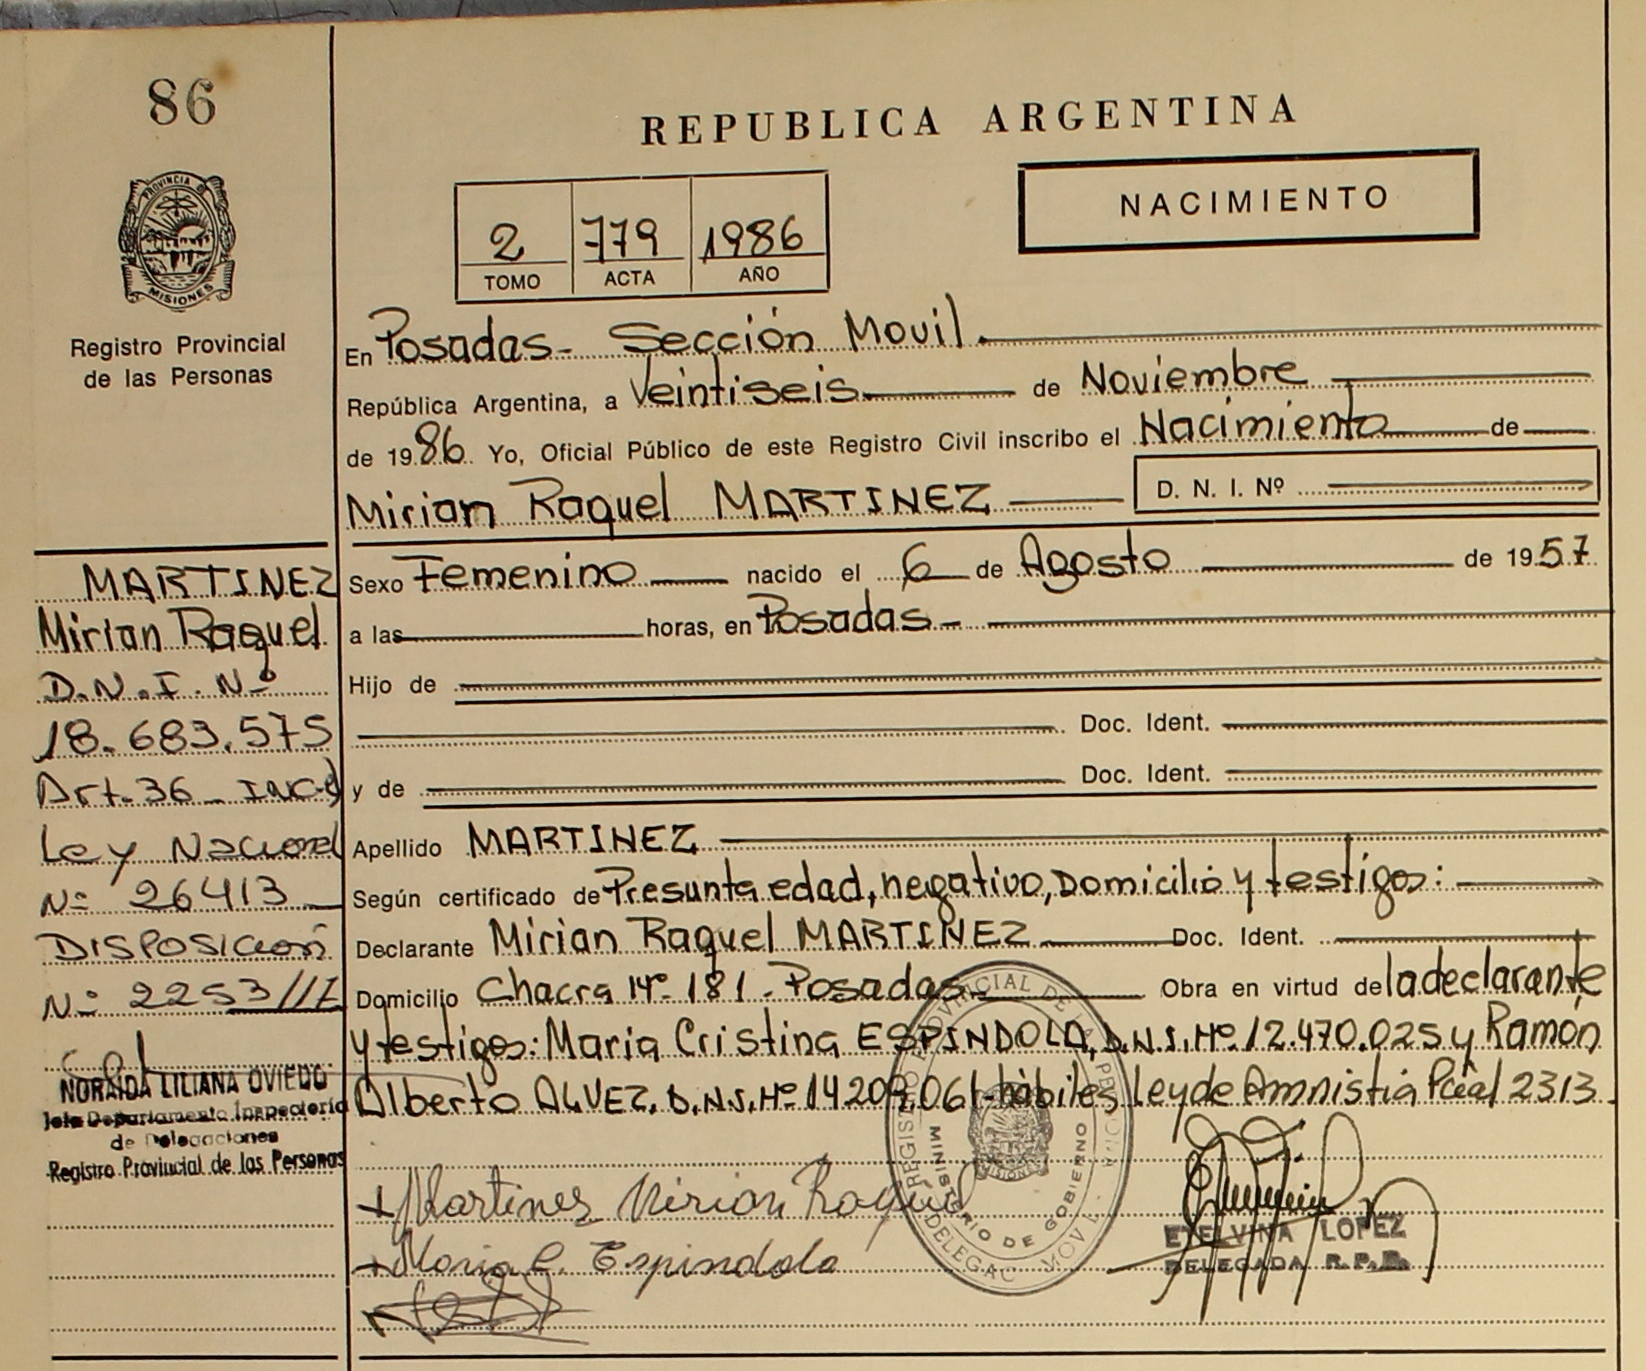 86
REPUBLICA ARGENTINA
NACIMIENTO
2 779 1986
TOMO ACTA AÑO
PROVINCIA D
MISIONES
Registro Provincial
de las Personas
En Posadas- Sección Movil.
República Argentina, a Veintiseis de Noviembre
de 1986. Yo, Oficial Público de este Registro Civil inscribo el Nacimiento de
Mirian Raquel MARTINEZ D. N. I. Nº
Sexo Femenino nacido el 6 de Agosto de 1957
a las horas, en Posadas.-
Hijo de
Doc. Ident.
y de Doc. Ident.
Apellido MARTINEZ
Según certificado de Presunta edad, negativo, Domicilio y testigos:
Declarante Mirian Raquel MARTINEZ Doc. Ident.
Domicilio Chacra Nº 181. Posadas.- Obra en virtud de la declarante
y testigos: Maria Cristina ESPINDOLA, D.N.I. Nº 12.470.025 y Ramón
Alberto ALVEZ. D.N.I. Nº 14209.061-hábiles Ley de Amnistia Pcial 2313.
Martinez Mirian Raquel
Maria C. Espindola
ETELVINA LOPEZ
DELEGADA R.P.P.
REGISTRO PROVINCIAL DE LAS PERSONAS
MINISTERIO DE GOBIERNO
DELEGAC MOVIL
MARTINEZ
Mirian Raquel
D.N.I. Nº
18.683.575
Art. 36 - INC-d
Ley Nacional
Nº 26413
DISPOSICION
Nº 2253//
NORAIDA LILIANA OVIEDO
Jefa Departamento Inspectoria
de Delegaciones
Registro Provincial de las Personas